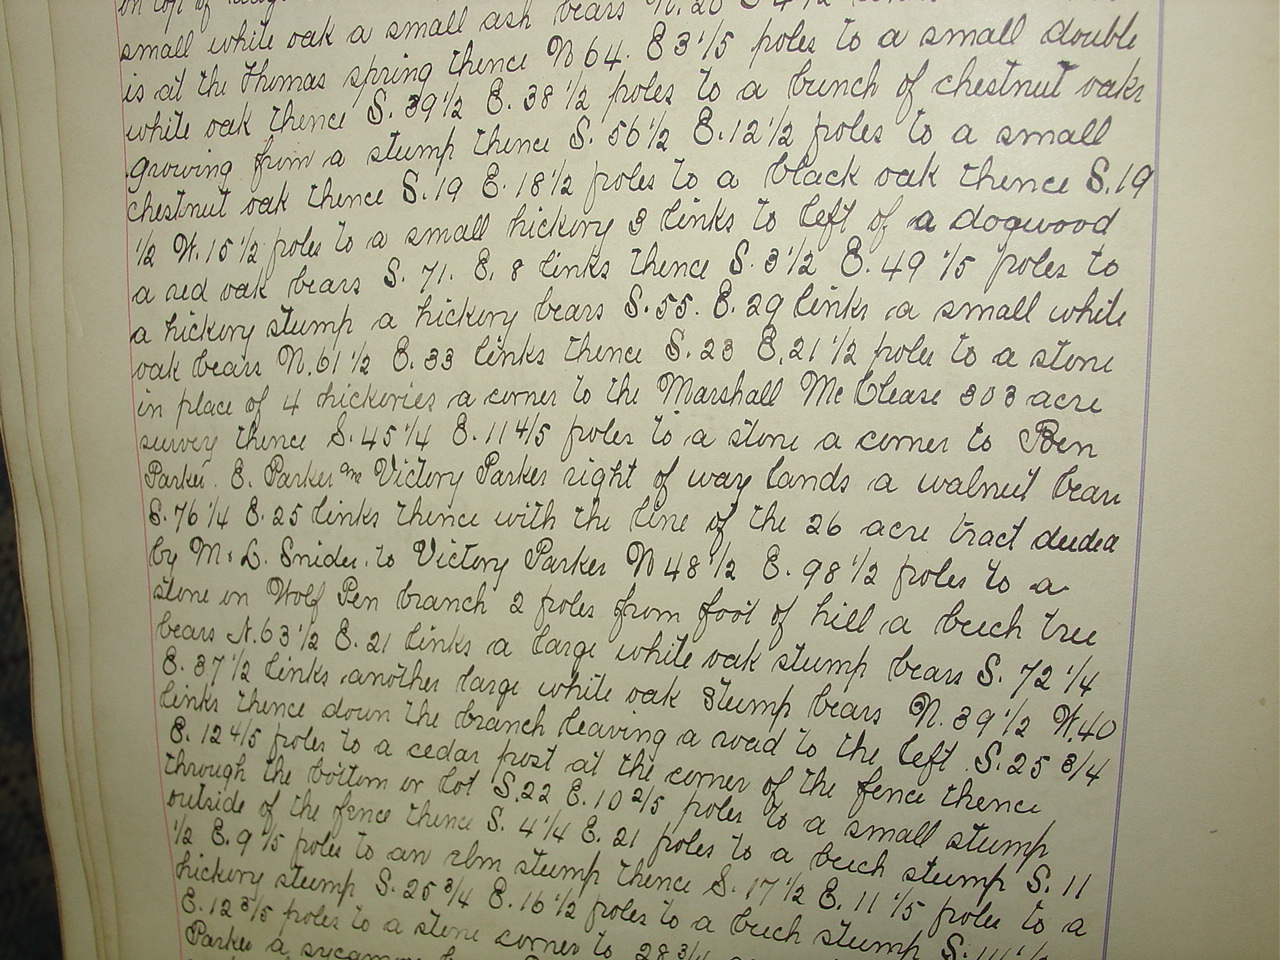 small white oak a small ash bears N. 20 E 4 1/2
is at the Thomas spring thence N 64. E 3 1/5 poles to a small double
white oak thence S. 39 1/2 E. 38 1/2 poles to a bunch of chestnut oaks
growing from a stump thence S. 56 1/2 E. 12 1/2 poles to a small
chestnut oak thence S. 19 E. 18 1/2 poles to a black oak thence S. 19
1/2 W. 15 1/2 poles to a small hickory 3 links to left of a dogwood
a red oak bears S. 71. E. 8 links thence S. 3 1/2 E. 49 1/5 poles to
a hickory stump a hickory bears S. 55. E. 29 links a small white
oak bears N. 61 1/2 E. 33 links thence S. 23 E. 21 1/2 poles to a stone
in place of 4 hickories a corner to the Marshall McClease 303 acre
survey thence S. 45 1/4 E. 11 4/5 poles to a stone a corner to Ben
Parker. E. Parker Victory Parker right of way lands a walnut bears
S. 76 1/4 E. 25 links thence with the line of the 26 acre tract deeded
by M. L. Snider. to Victory Parker N 48 1/2 E. 98 1/2 poles to a
stone in Wolf Pen branch 2 poles from foot of hill a beech tree
bears N. 63 1/2 E. 21 links a large white oak stump bears S. 72 1/4
E. 37 1/2 links another large white oak stump bears N. 39 1/2 W. 40
links thence down the branch leaving a road to the left S. 25 3/4
E. 12 4/5 poles to a cedar post at the corner of the fence thence
through the bottom or lot S. 22 E. 10 2/5 poles to a small stump
outside of the fence thence S. 4 1/4 E. 21 poles to a beech stump S. 11
1/2 E. 9 1/5 poles to an elm stump thence S. 17 1/2 E. 11 1/5 poles to a
hickory stump S. 25 3/4 E. 16 1/2 poles to a beech stump S.
E. 12 3/5 poles to a stone corner to 28 3/4
Parker a sycamore